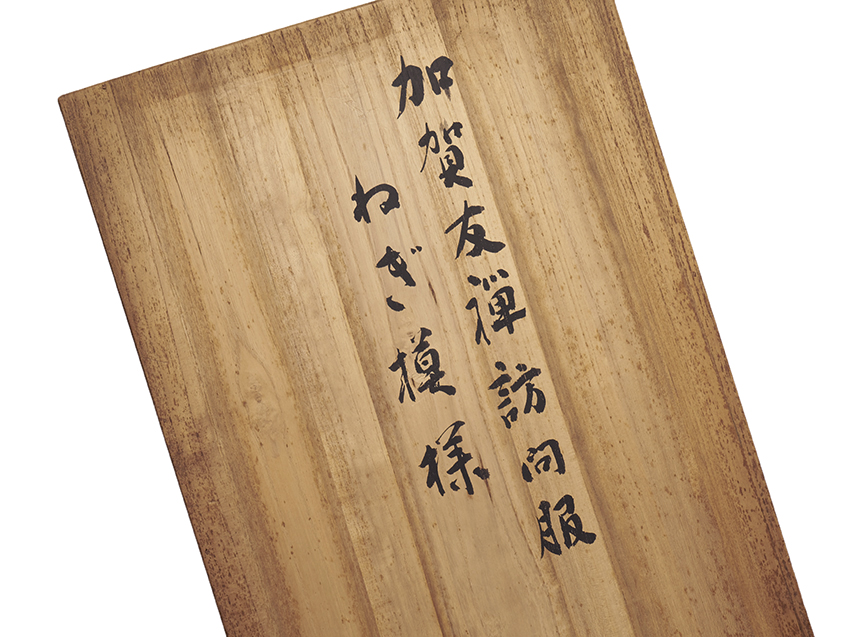 加賀友禅訪問服
ねぎ模様